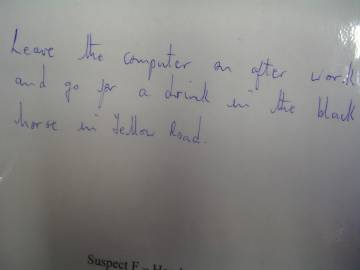 Leave the computer on after work
and go for a drink in the black
horse in Yellow Road.
Suspect F –